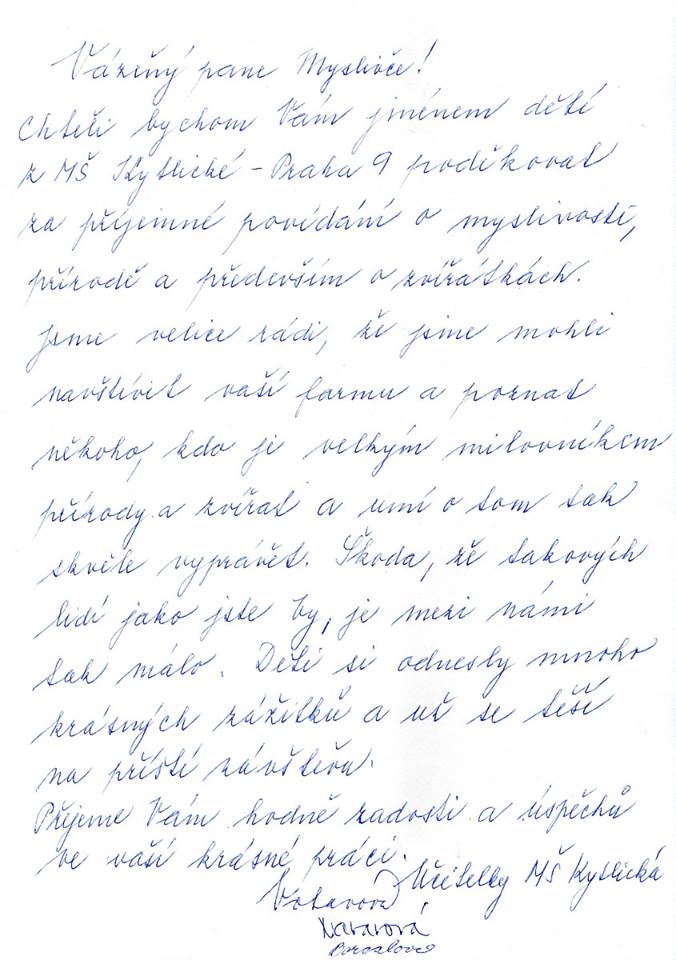 Vážený pane Myslivče!
Chtěli bychom Vám jménem dětí
z MŠ Kytlické - Praha 9 poděkovat
za příjemné povídání o myslivosti,
přírodě a především o zvířátkách.
Jsme velice rádi, že jsme mohli
navštívit vaší farmu a poznat
někoho, kdo je velkým milovníkem
přírody a zvířat a umí o tom tak
skvěle vyprávět. Škoda, že takových
lidí jako jste by, je mezi námi
tak málo. Děti si odnesly mnoho
krásných zážitků a už se těší
na příští závštěvu.
Přejeme Vám hodně radosti a úspěchů
ve vaší krásné práci.
Učitelky MŠ Kytlická
Votavová